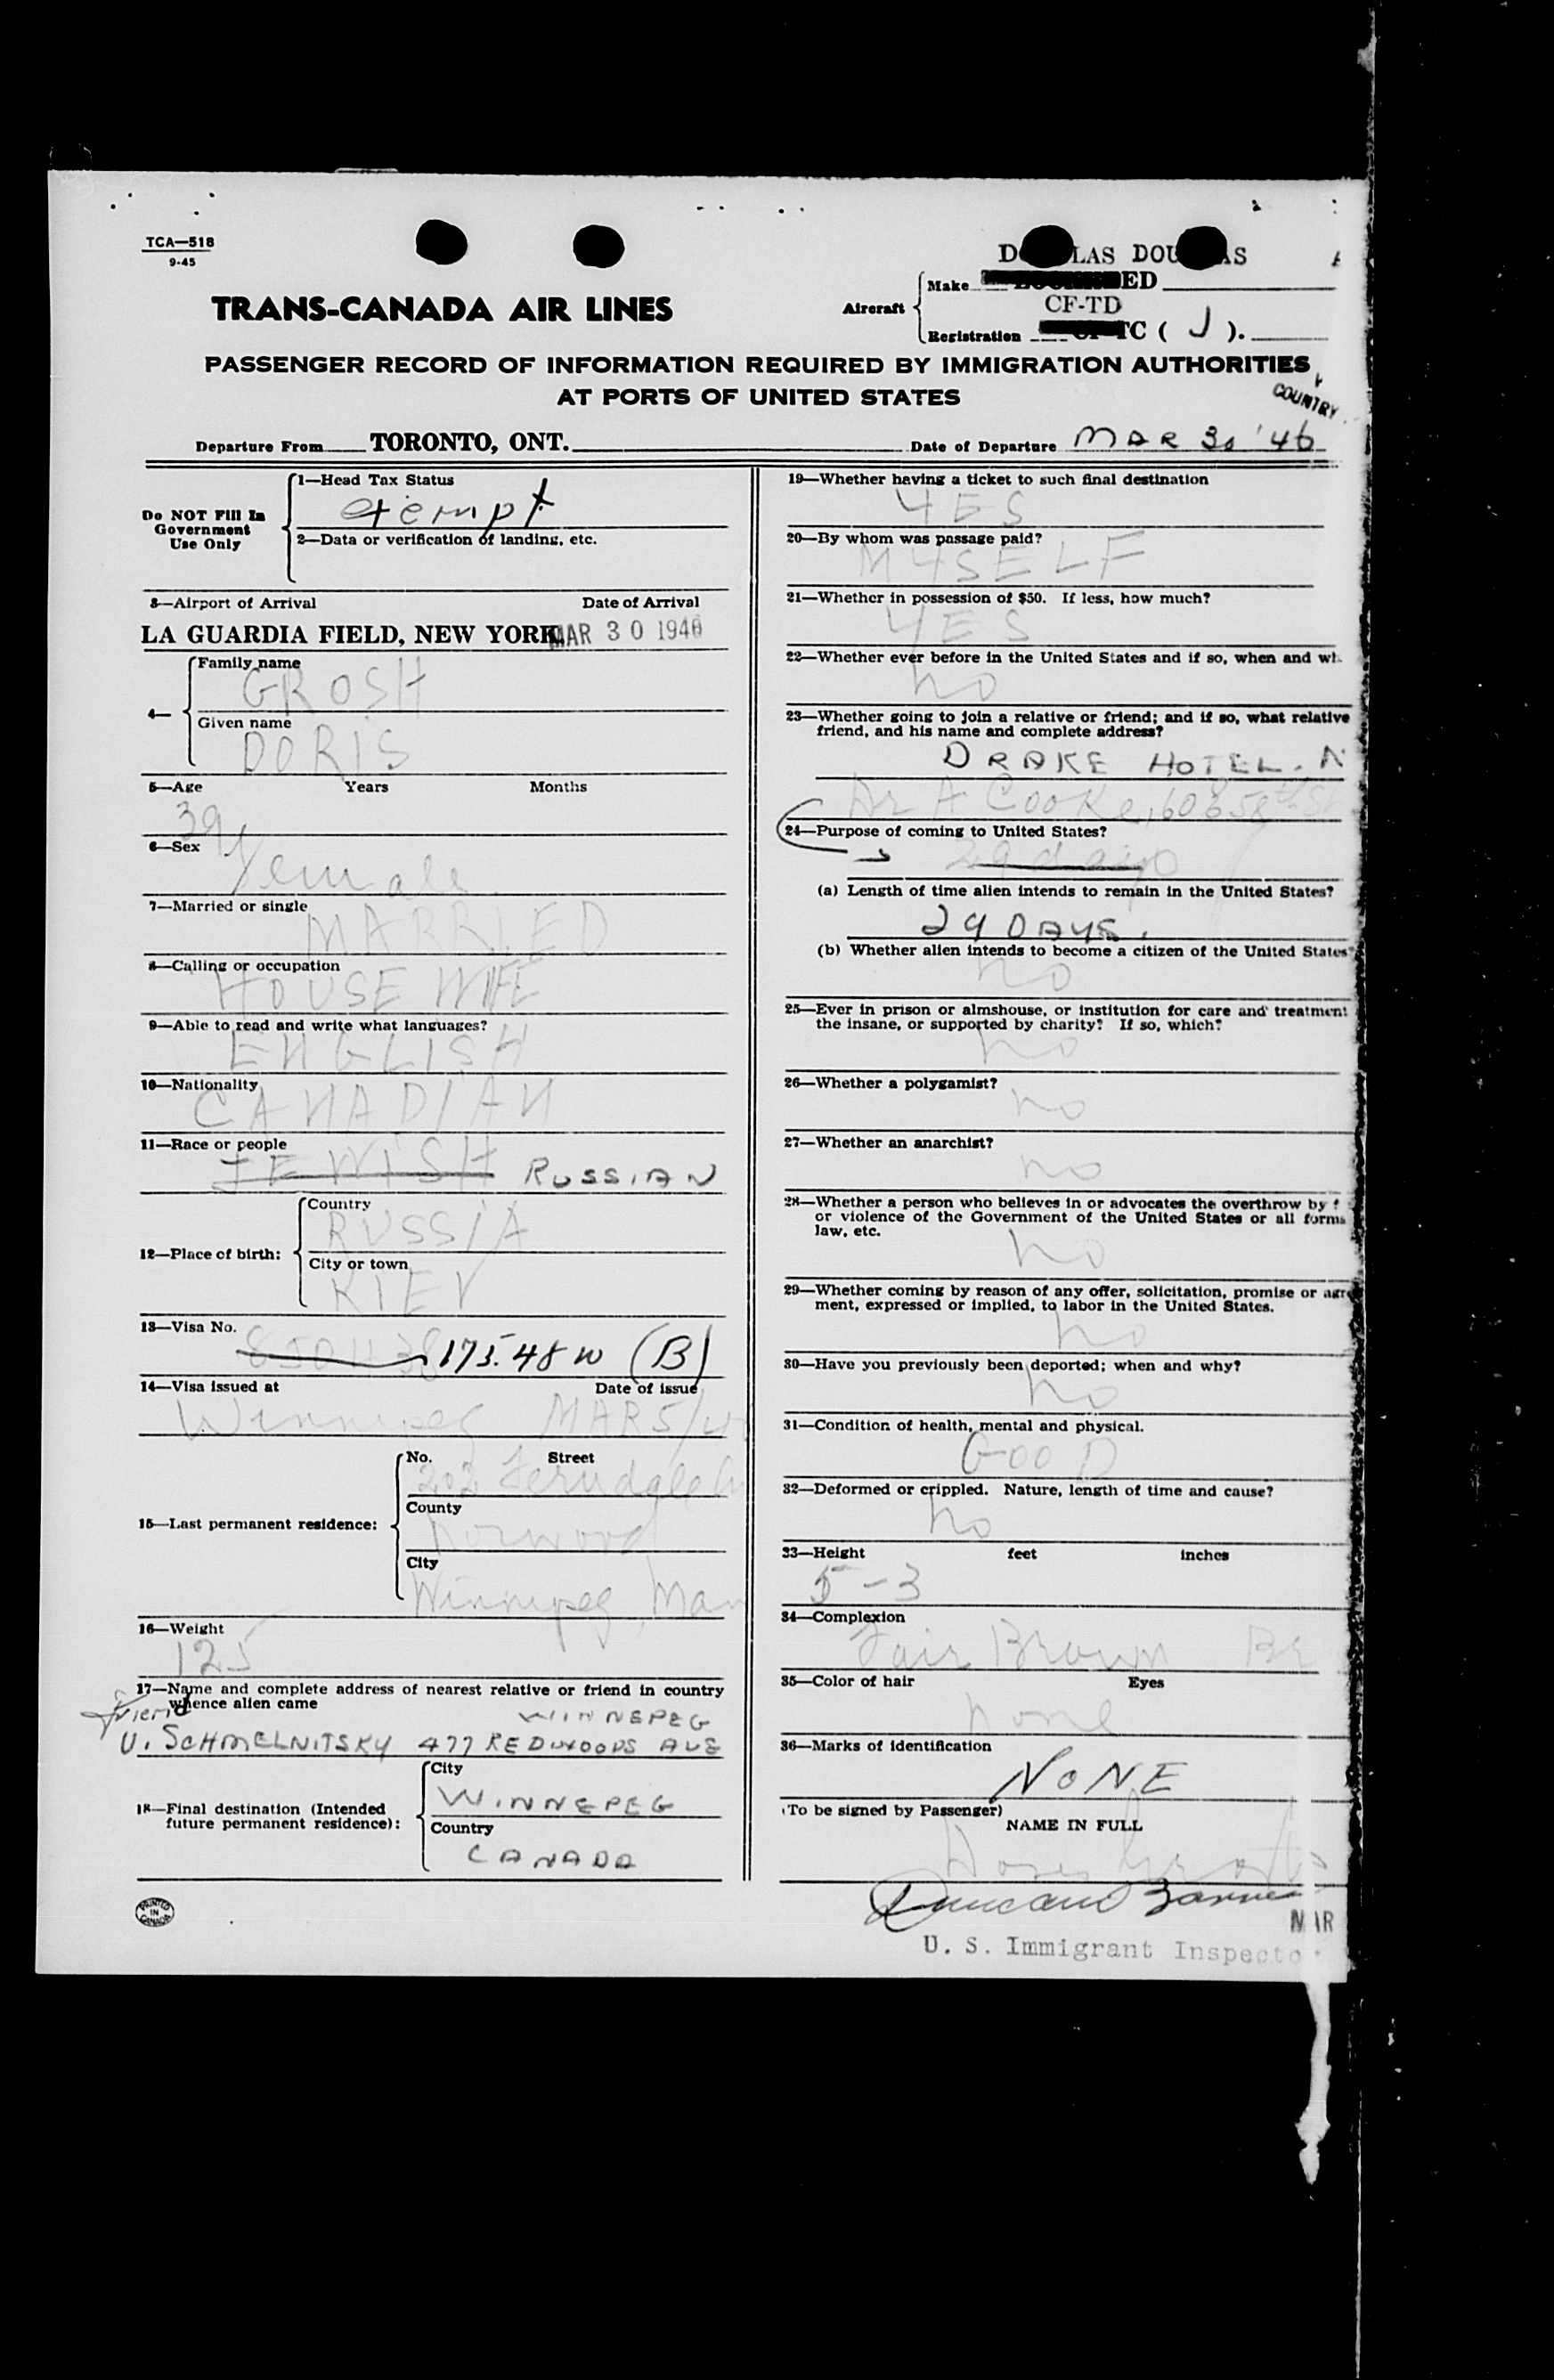 TCA—518
9-45
DOUGLAS DOUGLAS
TRANS-CANADA AIR LINES
Aircraft
Make ED
CF-TD
Registration TC ( J ).
PASSENGER RECORD OF INFORMATION REQUIRED BY IMMIGRATION AUTHORITIES
AT PORTS OF UNITED STATES
COUNTRY
Departure From TORONTO, ONT. Date of Departure MAR 30 '46
Do NOT Fill In
Government
Use Only
1—Head Tax Status
exempt
2—Data or verification of landing, etc.
3—Airport of Arrival Date of Arrival
LA GUARDIA FIELD, NEW YORK MAR 30 1946
4—
Family name
GROSH
Given name
DORIS
5—Age Years Months
39
6—Sex
Female
7—Married or single
MARRIED
8—Calling or occupation
HOUSE WIFE
9—Able to read and write what languages?
ENGLISH
10—Nationality
CANADIAN
11—Race or people
JEWISH RUSSIAN
12—Place of birth:
Country
RUSSIA
City or town
KIEV
13—Visa No.
175.48 W (B)
14—Visa issued at Date of issue
Winnipeg MAR 5/4
15—Last permanent residence:
No. Street
202 Ferndale
County
Norwood
City
Winnipeg Man
16—Weight
125
17—Name and complete address of nearest relative or friend in country
whence alien came
friend
WINNEPEG
U. SCHMELNITSKY 477 REDWOODS AVE
18—Final destination (Intended
future permanent residence):
City
WINNEPEG
Country
CANADA
PRINTED
IN
CANADA
19—Whether having a ticket to such final destination
YES
20—By whom was passage paid?
MYSELF
21—Whether in possession of $50. If less, how much?
YES
22—Whether ever before in the United States and if so, when and wh
no
23—Whether going to join a relative or friend; and if so, what relative
friend, and his name and complete address?
DRAKE HOTEL. N
A Cooke, 58th St
24—Purpose of coming to United States?
29 days
(a) Length of time alien intends to remain in the United States?
29 DAYS.
(b) Whether alien intends to become a citizen of the United States?
no
25—Ever in prison or almshouse, or institution for care and treatment
the insane, or supported by charity? If so, which?
no
26—Whether a polygamist?
no
27—Whether an anarchist?
no
28—Whether a person who believes in or advocates the overthrow by f
or violence of the Government of the United States or all forms
law, etc.
no
29—Whether coming by reason of any offer, solicitation, promise or agre
ment, expressed or implied, to labor in the United States.
no
30—Have you previously been deported; when and why?
no
31—Condition of health, mental and physical.
GOOD
32—Deformed or crippled. Nature, length of time and cause?
no
33—Height feet inches
5-3
34—Complexion
Fair Brown Br
35—Color of hair Eyes
none
36—Marks of identification
NONE
(To be signed by Passenger)
NAME IN FULL
Doris Grosh
Duncan
MAR
U. S. Immigrant Inspector